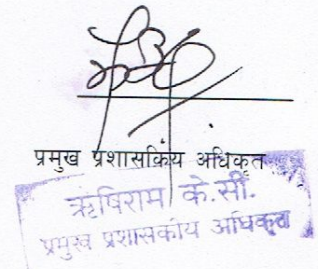 प्रमुख प्रशासकिय अधिकृत
ऋषिराम के.सी.
प्रमुख प्रशासकीय अधिकृत